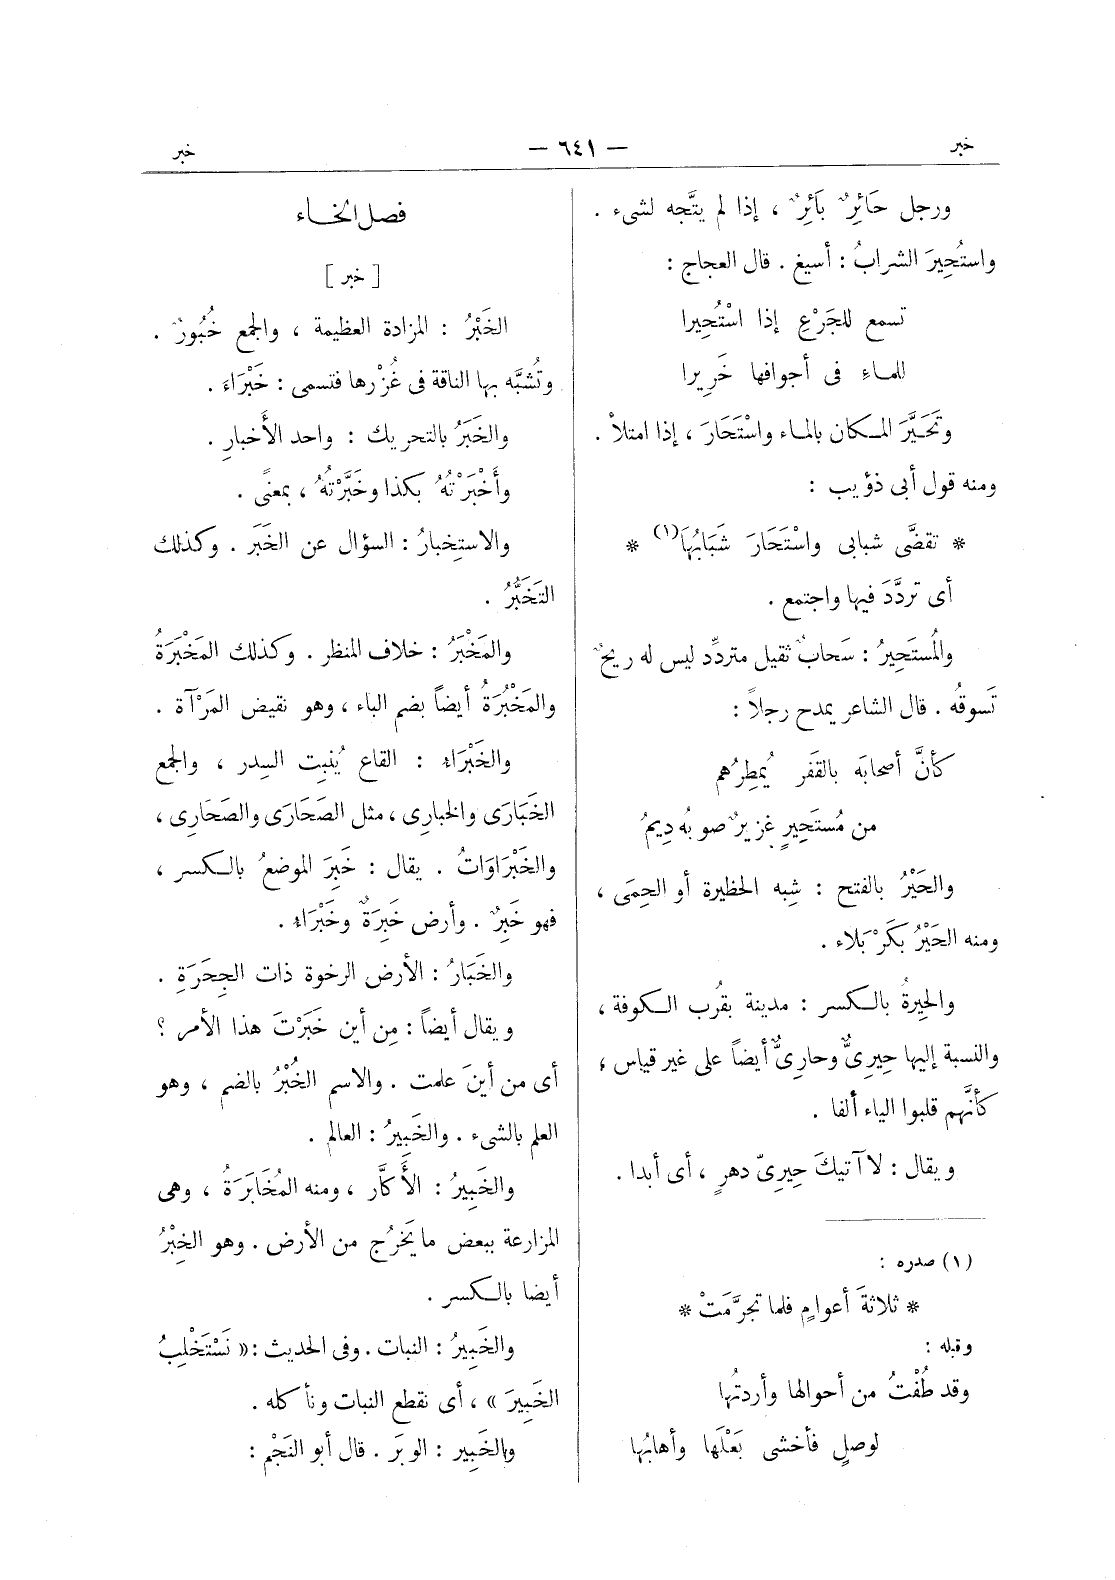 خبر — ٦٤١ — خبر
ورجل حَائِرٌ بَائِرٌ ، إذا لم يتَّجه لشىء .
واستُحِيرَ الشرابُ : أسيغ . قال العجاج :
تسمع للجَرْعِ إذا اسْتُحِيرا
للماءِ فى أجوافها خَرِيرا
وتَحَيَّرَ المكان بالماء واسْتَحَارَ ، إذا امتلأ .
ومنه قول أبى ذؤيب :
* تقضَّى شبابى واسْتَحَارَ شَبَابُهَا (١) *
أى تردَّدَ فيها واجتمع .
والمُستَحِيرُ : سَحابٌ ثقيل متردِّد ليس له ريحٌ
تَسوقُه . قال الشاعر يمدح رجلاً :
كأنَّ أصحابَه بالقَفر يُمطِرُهم
من مُستَحِيرٍ غزيرٌ صوبُه دِيمُ
والحَيْرُ بالفتح : شِبه الحظيرة أو الحِمَى ،
ومنه الحَيْرُ بكَرْبَلاء .
والحِيرةُ بالكسر : مدينة بقُرب الكوفة ،
والنسبة إليها حِيرِىٌّ وحارِىٌّ أيضاً على غير قياس ،
كأنَّهم قلبوا الياء ألفا .
ويقال : لا آتيكَ حِيرِىّ دهرٍ ، أى أبدا .
(١) صدره :
* ثلاثةَ أعوامٍ فلما تجرَّمَتْ *
وقبله :
وقد طُفْتُ من أحوالها وأردتُها
لوصلٍ فأخشى بَعْلَها وأهابُها
فصل الخاء
[ خبر ]
الخَبْرُ : المزادة العظيمة ، والجمع خُبُورٌ .
وتُشبَّه بها الناقة فى غُزْرها فتسمى : خَبْرَاءَ .
والخَبَرُ بالتحريك : واحد الأَخبارِ .
وأَخْبَرْتُهُ بكذا وخَبَّرْتُهُ ، بمعنًى .
والاستِخبارُ : السؤال عن الخَبَر . وكذلك
التَخَبُّرُ .
والمَخْبَرُ : خلاف المنظر . وكذلك المَخْبَرَةُ
والمَخْبُرَةُ أيضاً بضم الباء ، وهو نقيض المَرْآة .
والخَبْرَاء : القاع يُنبِت السِدر ، والجمع
الخَبَارَى والخبارِى ، مثل الصَحَارَى والصَحَارِى ،
والخَبْرَاوَاتُ . يقال : خَبِرَ الموضعُ بالكسر ،
فهو خَبِرٌ . وأرض خَبِرَةٌ وخَبْرَاء .
والخَبَارُ : الأرض الرخوة ذات الجِحَرَةِ .
ويقال أيضاً : مِن أين خَبَرْتَ هذا الأمر ؟
أى من أينَ علمت . والاسم الخُبْرُ بالضم ، وهو
العلم بالشىء . والخَبِيرُ : العالم .
والخَبِيرُ : الأَكَّار ، ومنه المُخَابَرَةُ ، وهى
المزارعة ببعض ما يَخرُج من الأرض . وهو الخِبْرُ
أيضا بالكسر .
والخَبِيرُ : النبات . وفى الحديث : « نَسْتَخْلِبُ
الخَبِيرَ » ، أى نقطع النبات ونأكله .
والخَبِير : الوبَر . قال أبو النَجْم :